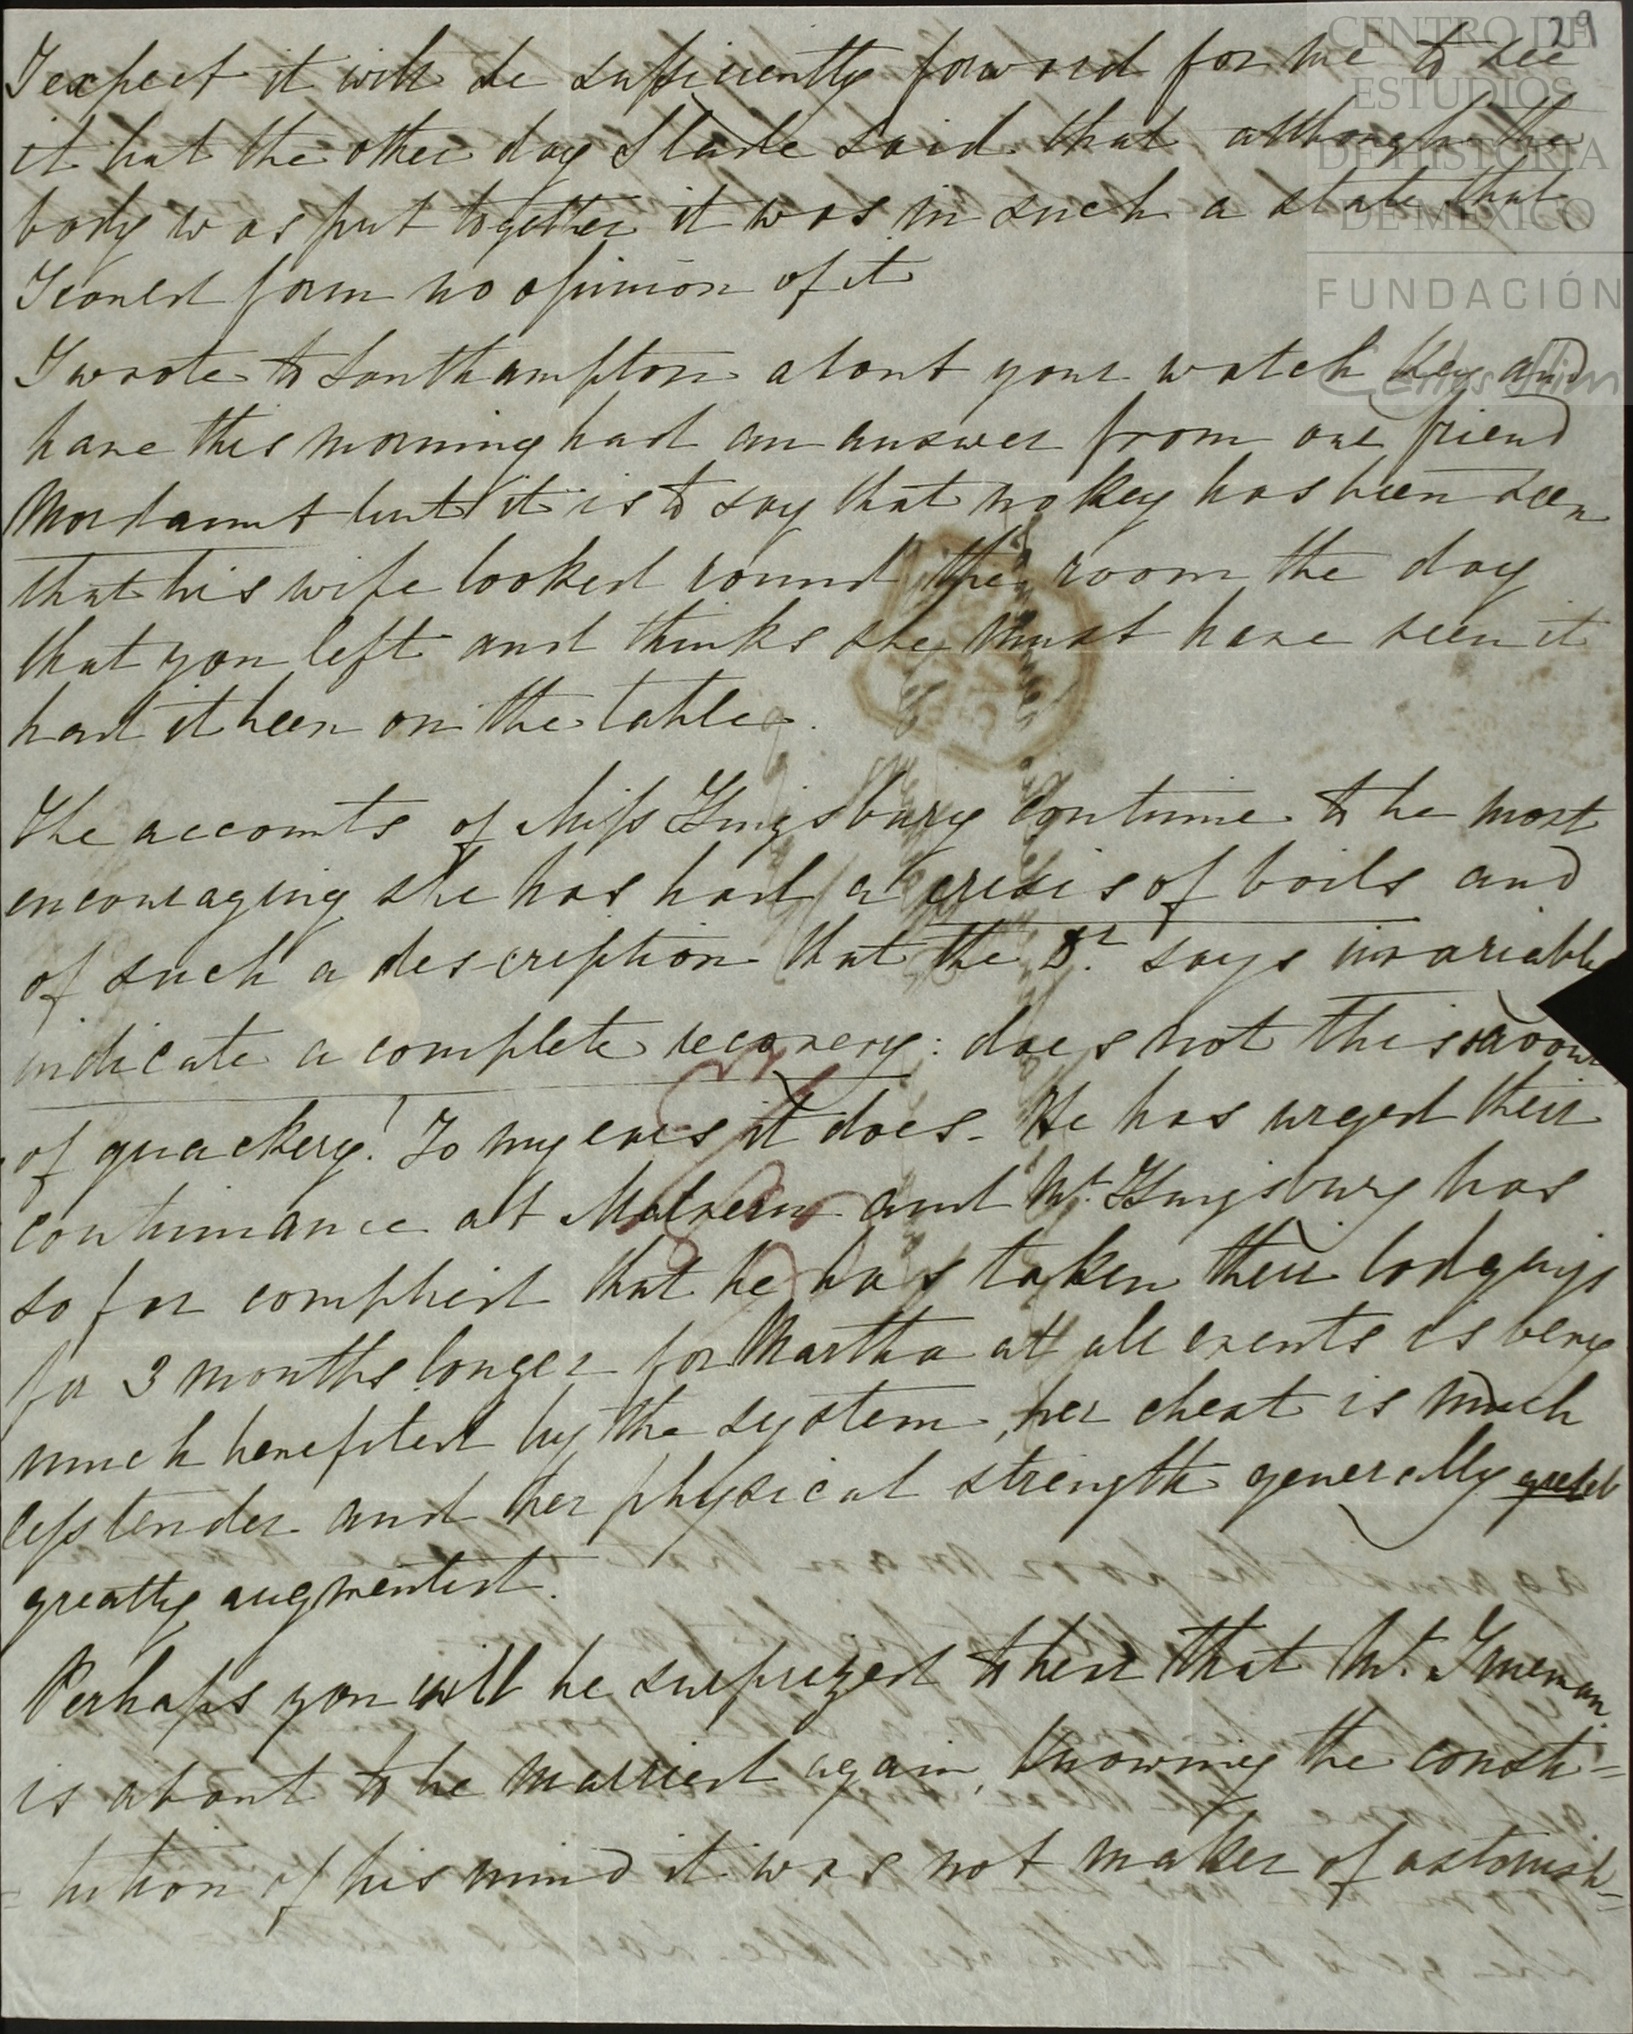 29
CENTRO DE
ESTUDIOS
DE HISTORIA
DE MÉXICO
FUNDACIÓN
Carlos Slim
I expect it will be sufficiently forward for me to see
it but the other day Slade said that although the
body was put together it was in such a state that
I could form no opinion of it
I wrote to Southampton about your watch key and
have this morning had an answer from our friend
Mordaunt but it is to say that no key has been seen
that his wife looked round the room the day
that you left and thinks she must have seen it
had it been on the table.
The accounts of Miss Kingsbury continue to be most
encouraging she has had a crisis of boils and
of such a description that the Dr. says invariably
indicate a complete recovery: does not this savour
of quackery! To my eares it does. He has urged their
continuance at Malvern and Mr. Kingsbury has
so far complied that he has taken their lodgings
for 3 months longer for Martha at all events is very
much benefited by the system, her chest is much
less tender and her physical strength generally
greatly augmented.
Perhaps you will be surprized to hear that Mr.
is about to be married again, knowing the consti=
=tution of his mind it was not matter of astonish=